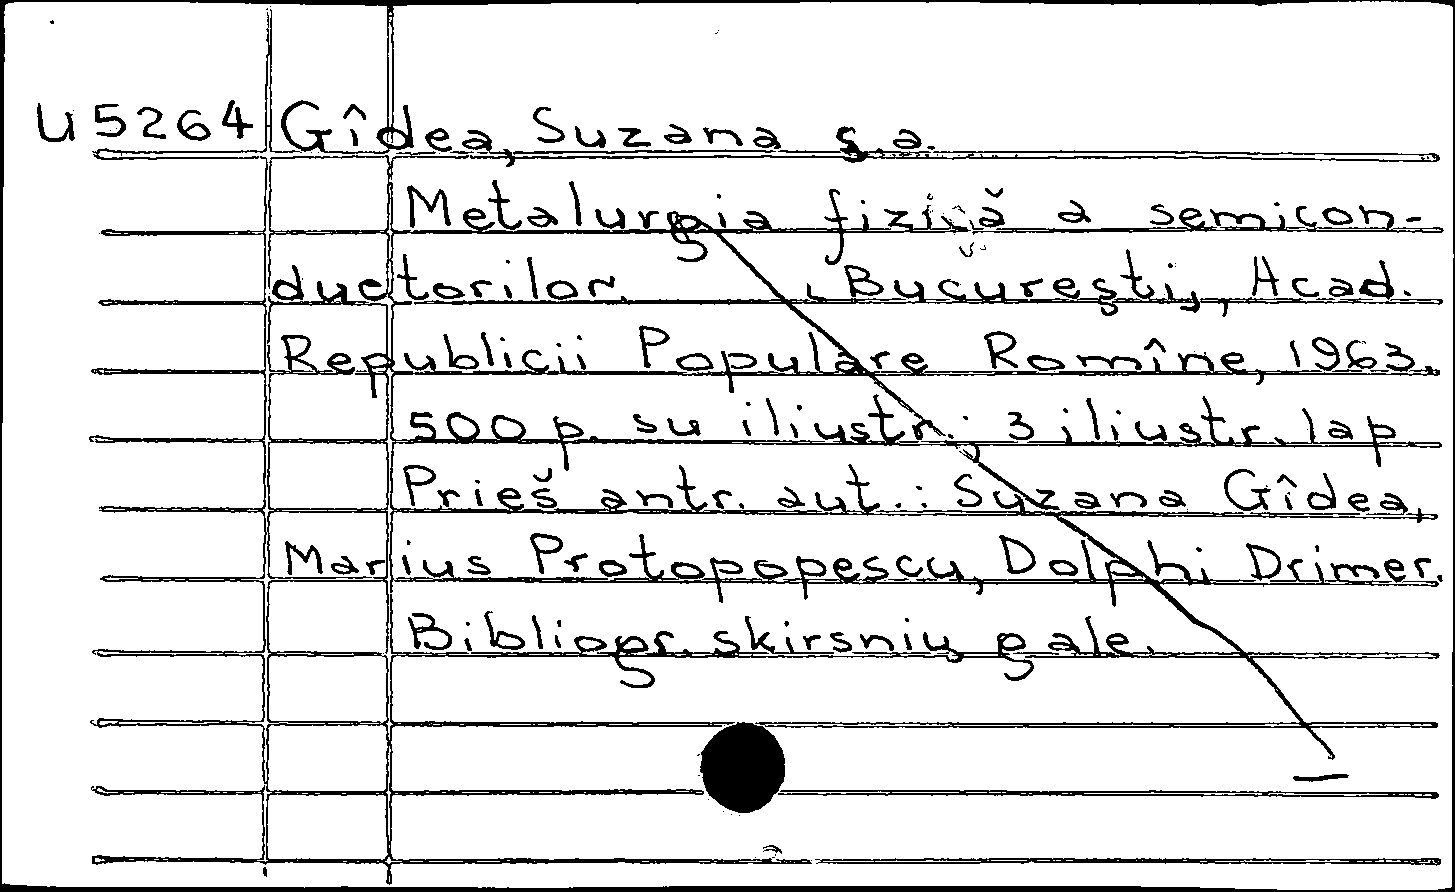 U5264 Gîdea, Suzana ş.a.
Metalurgia fizică a semicon-
ductorilor. Bucureşti, Acad.
Republicii Populare Romîne, 1963.
500 p. su iliustr.; 3 iliustr. lap
Prieš antr. aut.: Suzana Gîdea,
Marius Protopopescu, Dolphi Drimer.
Bibliogr. skirsnių gale.